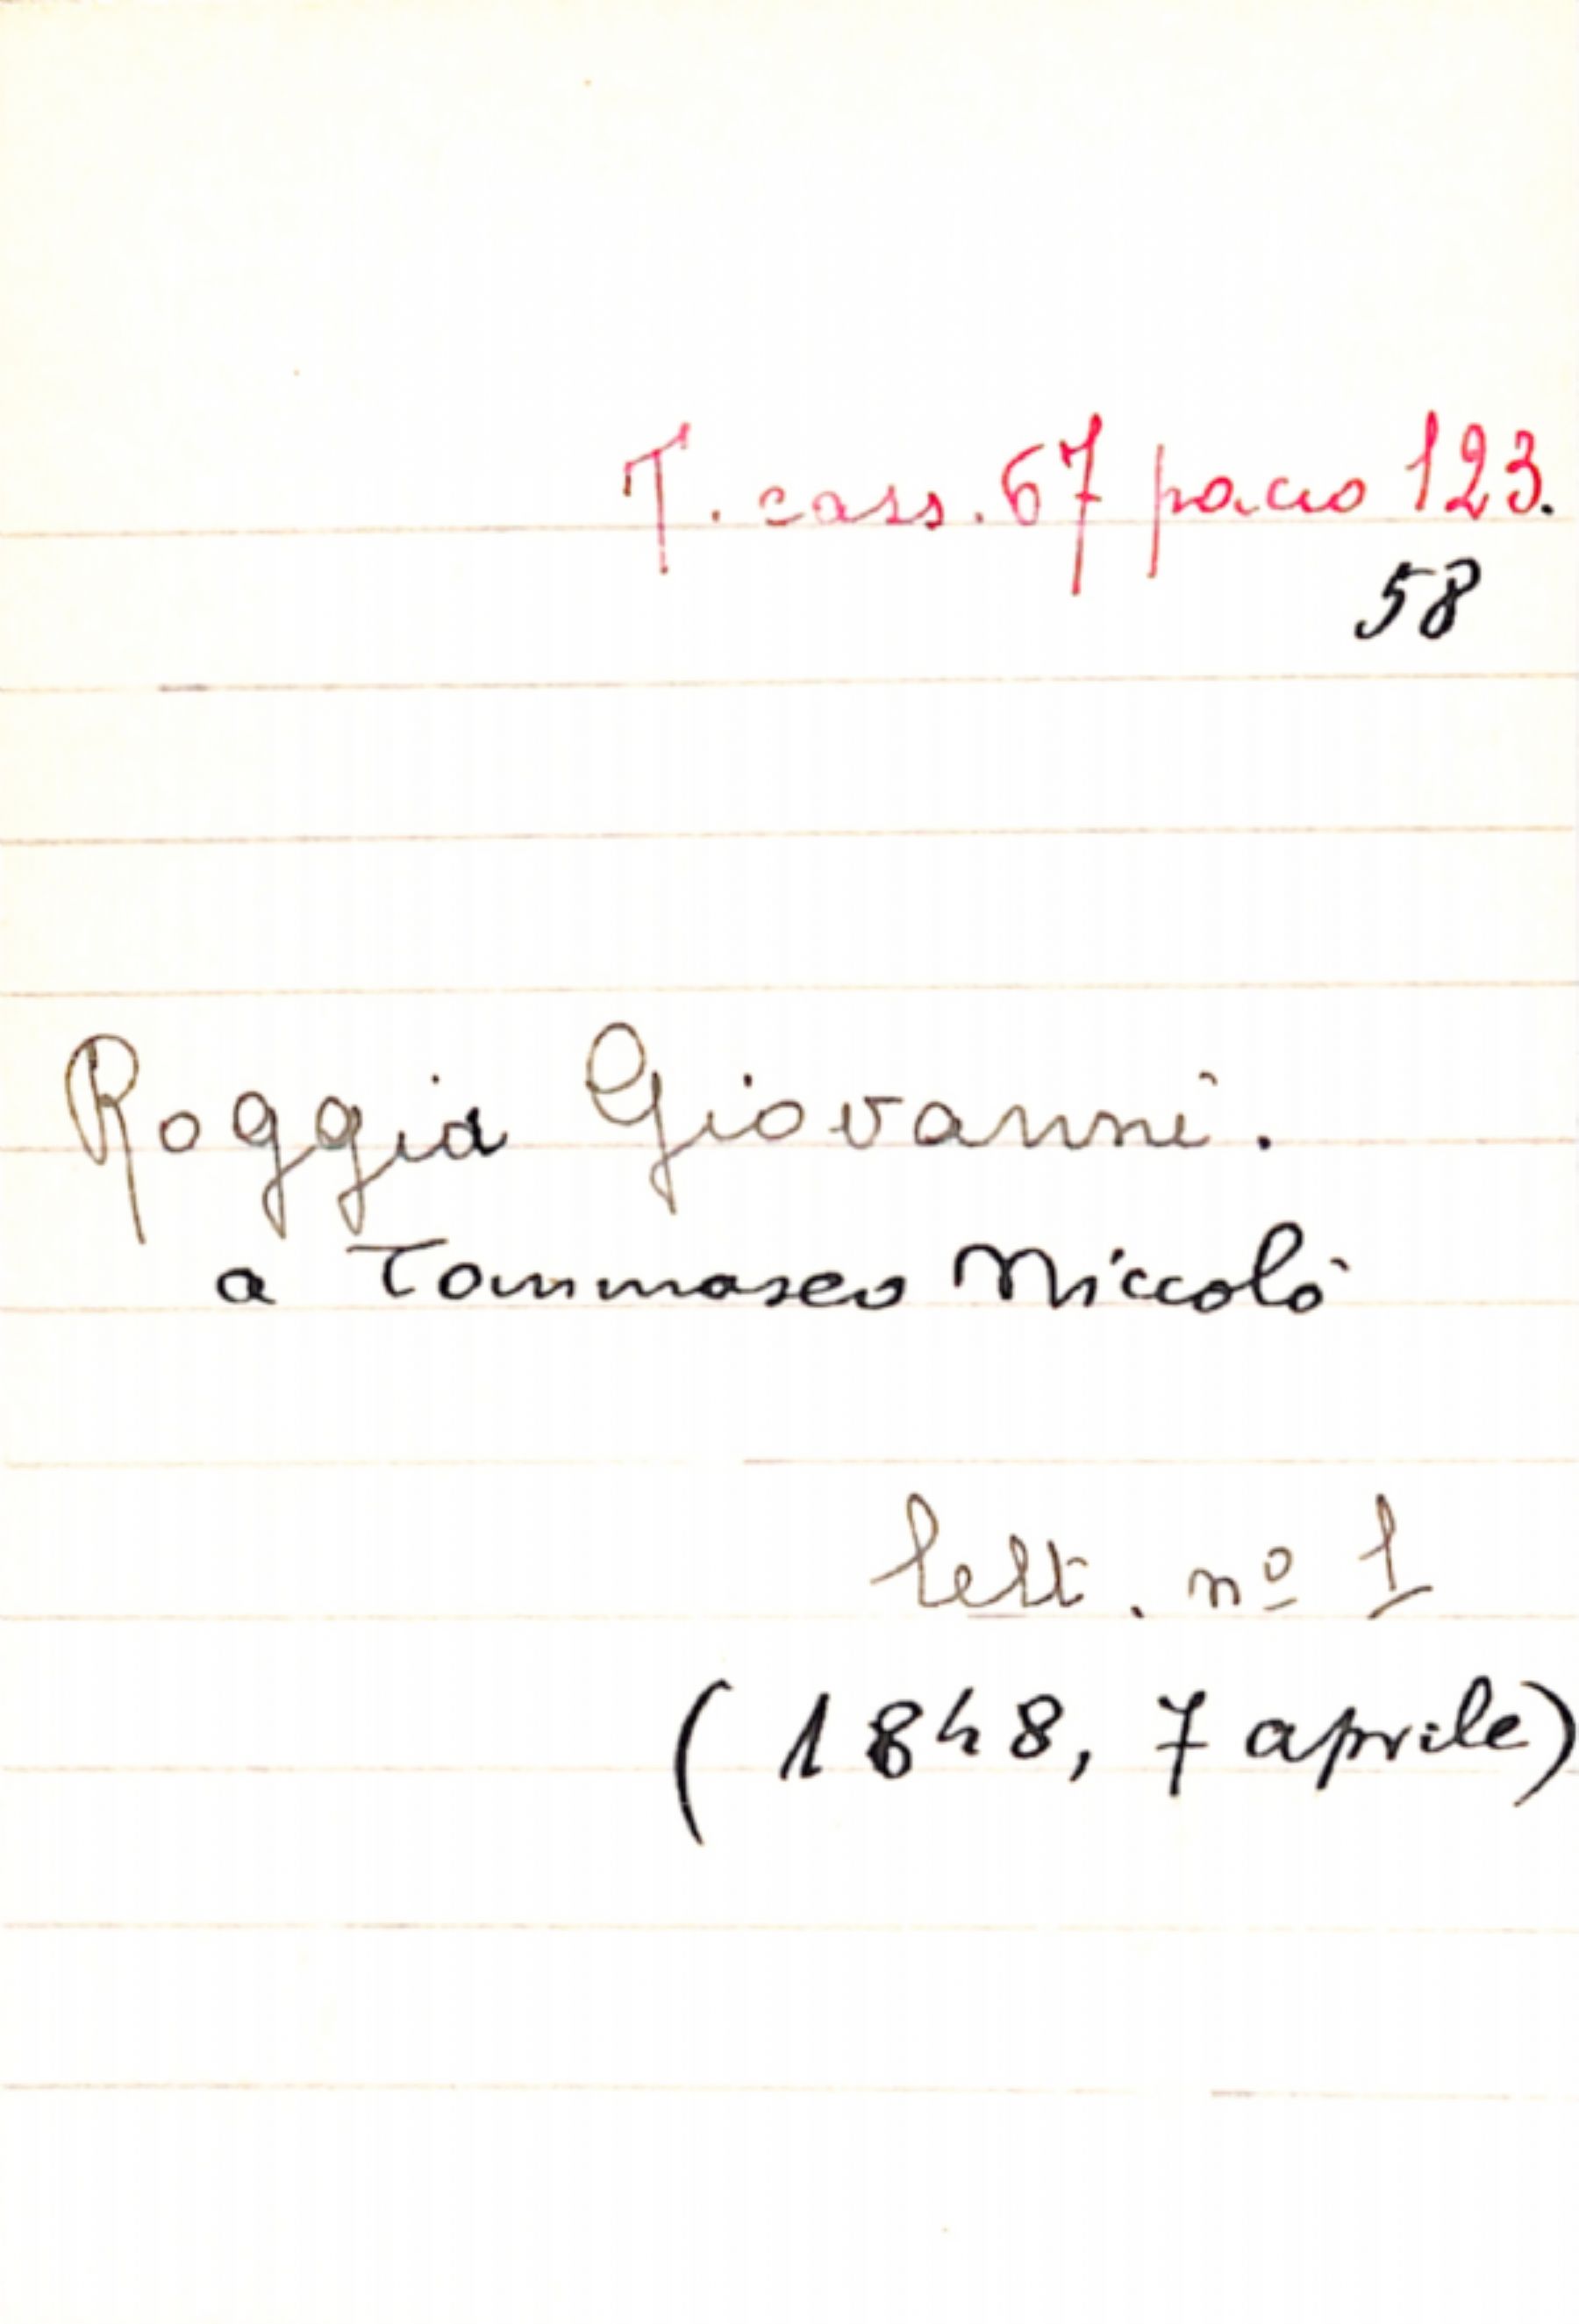 T. cass. 67 pacco 123.
58
Roggia Giovanni.
a Tommaseo Niccolò
lett. nº 1
(1848, 7 aprile)